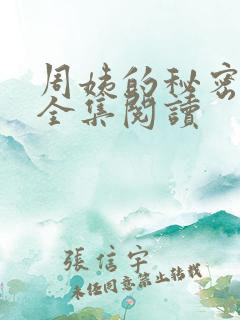 周姨的秘密
全集閱讀
張信宇
未经同意禁止转载